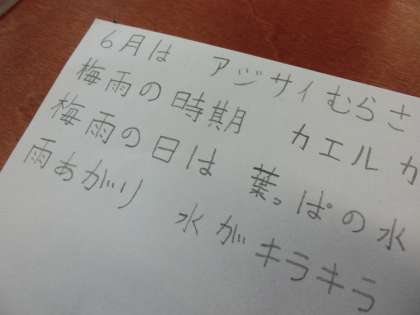 6月は　アジサイむらさ
梅雨の時期　カエルカ
梅雨の日は　葉っぱの水
雨あがり　水がキラキラ